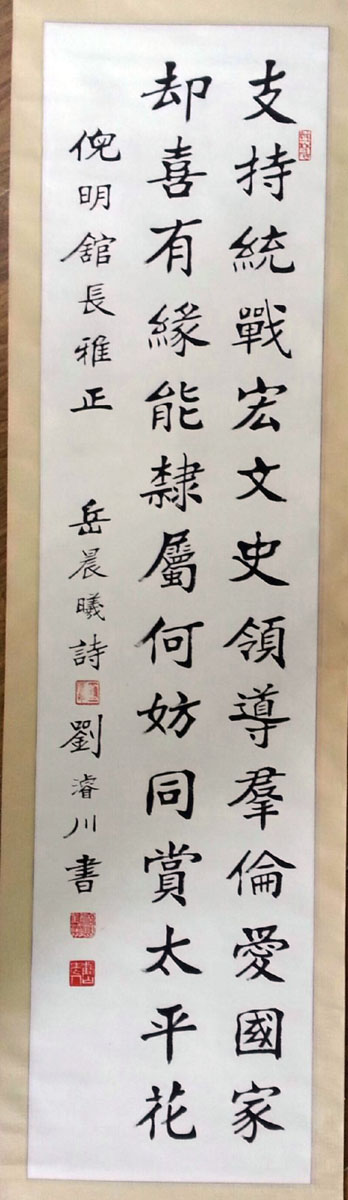 支持統戰宏文史領導羣倫愛國家
却喜有緣能隸屬何妨同賞太平花
倪明舘長雅正 岳晨曦詩 劉濬川書